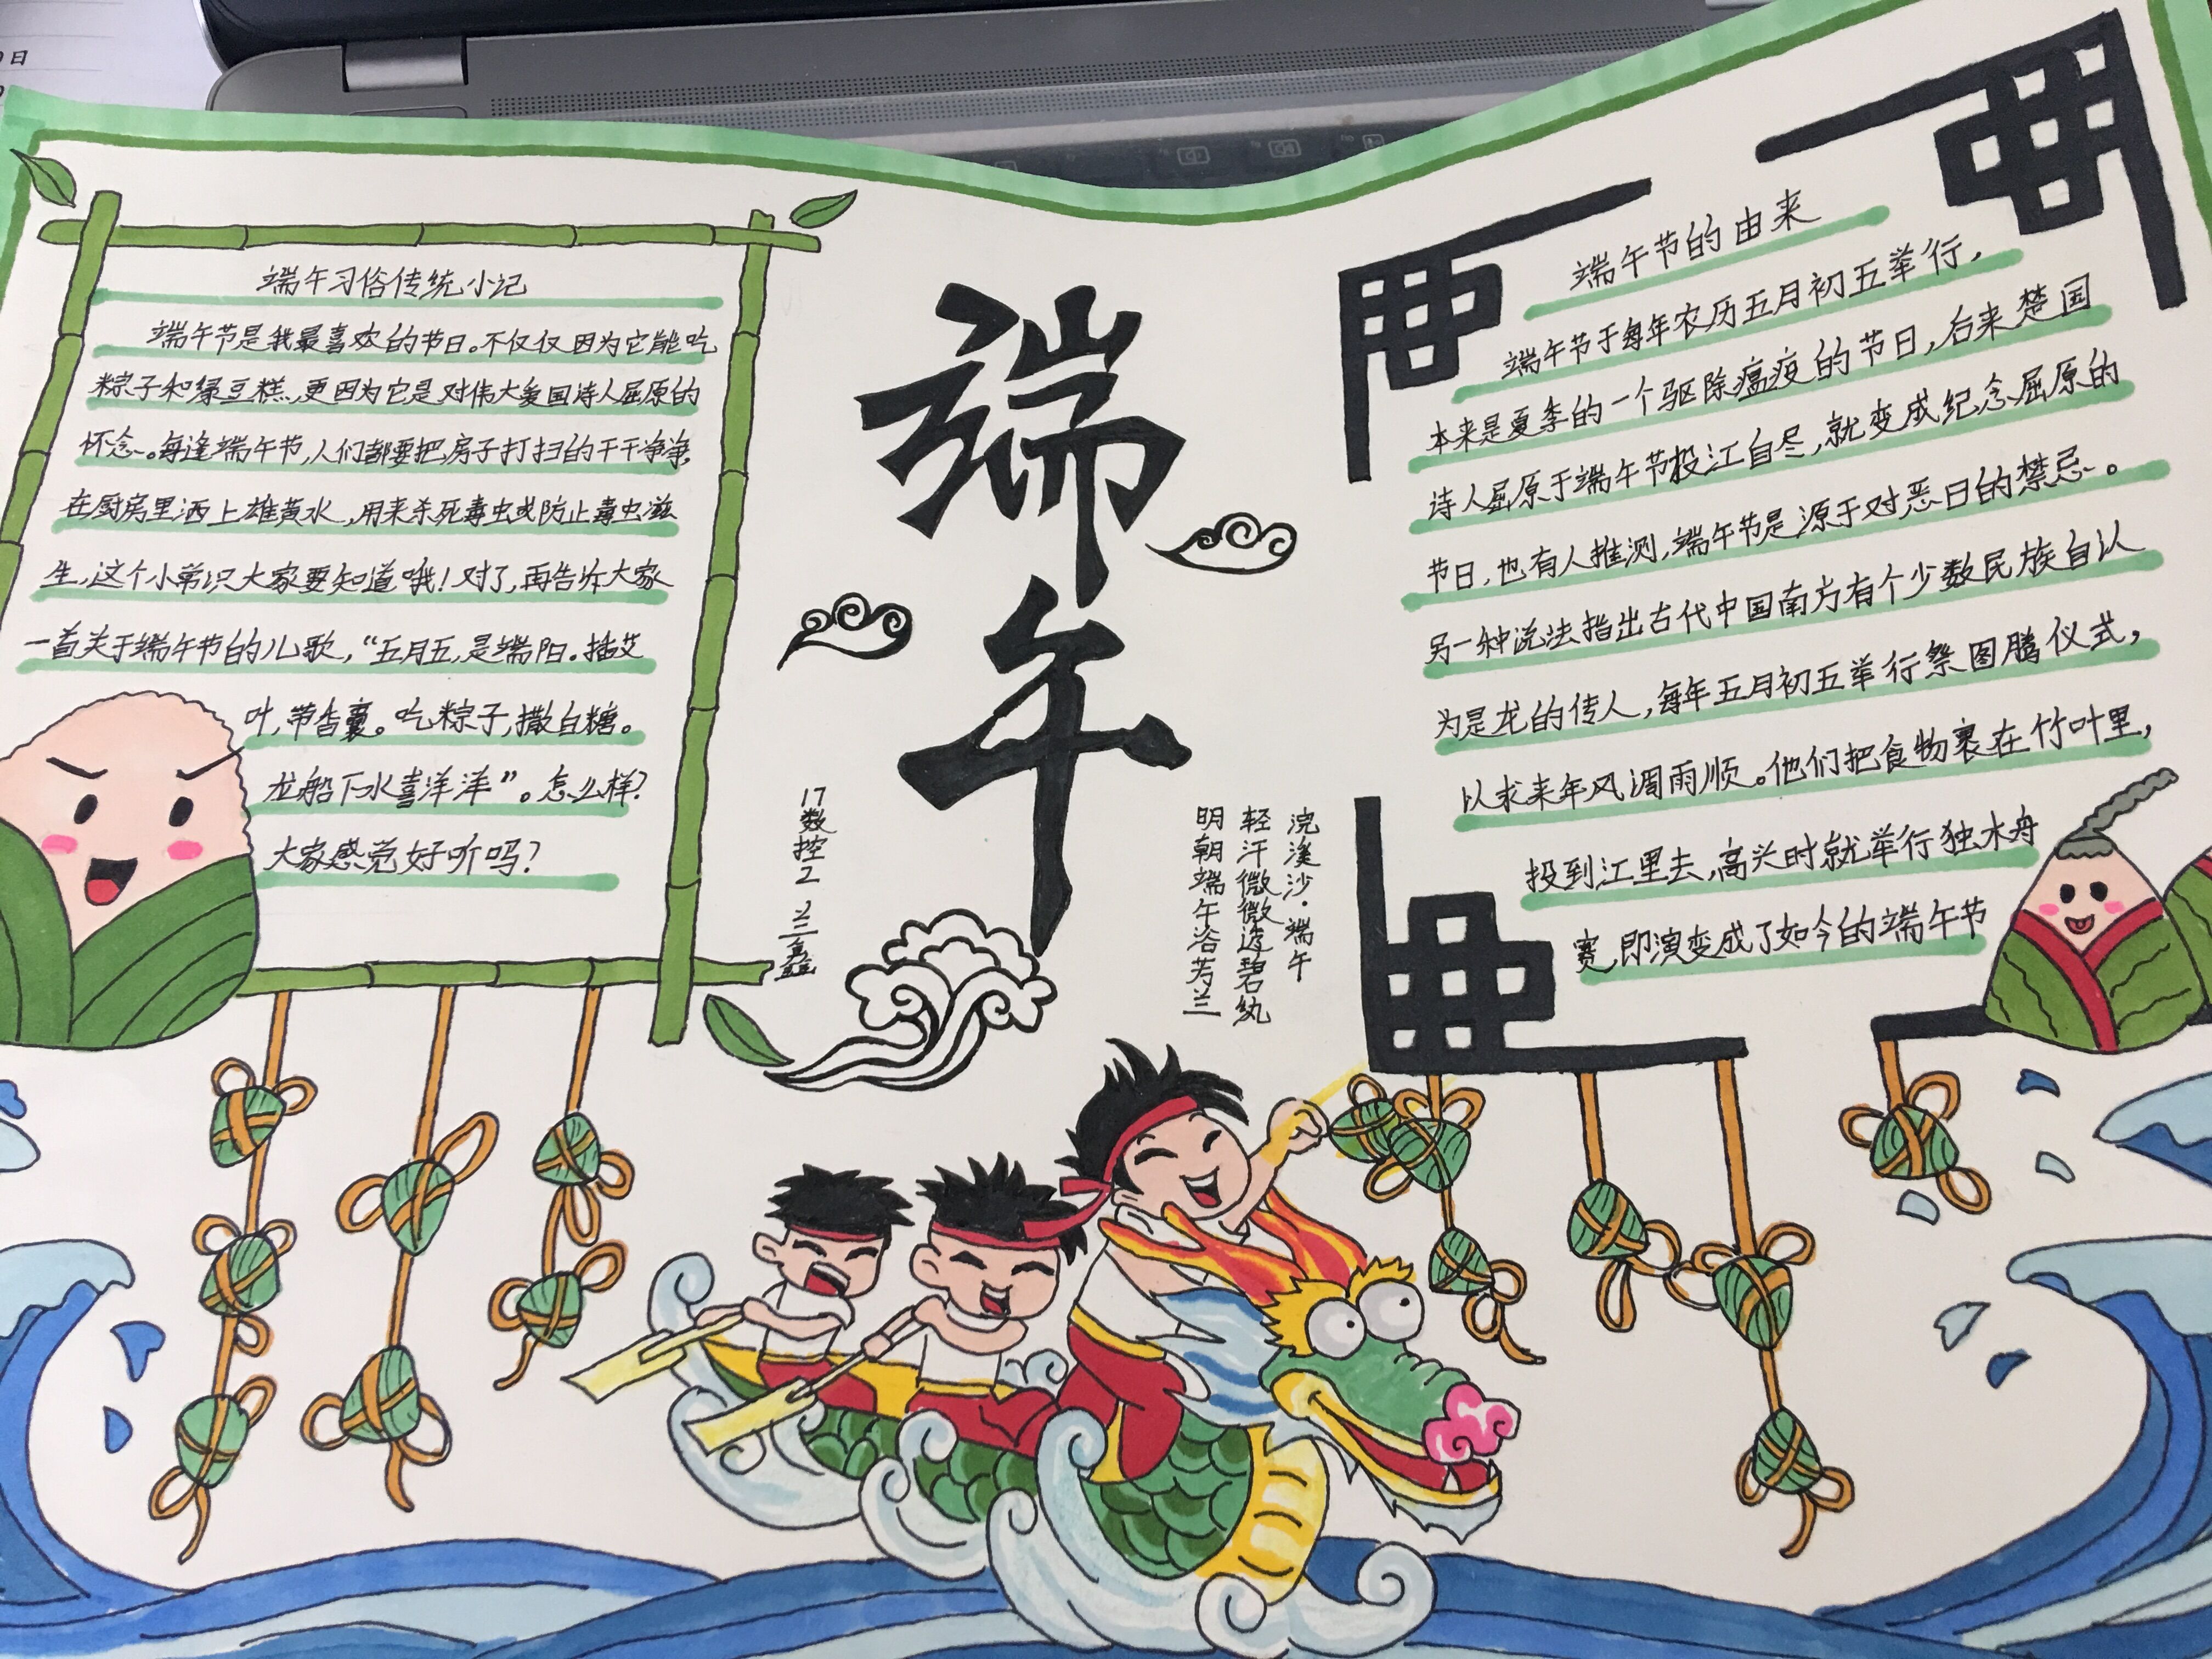 日
端午习俗传统小记
端午节是我最喜欢的节日。不仅仅因为它能吃
粽子和绿豆糕,更因为它是对伟大爱国诗人屈原的
怀念。每逢端午节,人们都要把房子打扫的干干净净,
在厨房里洒上雄黄水,用来杀死毒虫或防止毒虫滋
生,这个小常识大家要知道哦!对了,再告诉大家
一首关于端午节的儿歌,“五月五,是端阳。插艾
叶,带香囊。吃粽子,撒白糖。
龙船下水喜洋洋”。怎么样?
大家感觉好听吗?
端午
17数控2 兰鑫
浣溪沙·端午
轻汗微微透碧纨
明朝端午浴芳兰
端午节的由来
端午节于每年农历五月初五举行,
本来是夏季的一个驱除瘟疫的节日,后来楚国
诗人屈原于端午节投江自尽,就变成纪念屈原的
节日,也有人推测,端午节是源于对恶日的禁忌。
另一种说法指出古代中国南方有个少数民族自认
为是龙的传人,每年五月初五举行祭图腾仪式,
以求来年风调雨顺。他们把食物裹在竹叶里,
投到江里去,高兴时就举行独木舟
赛,即演变成了如今的端午节